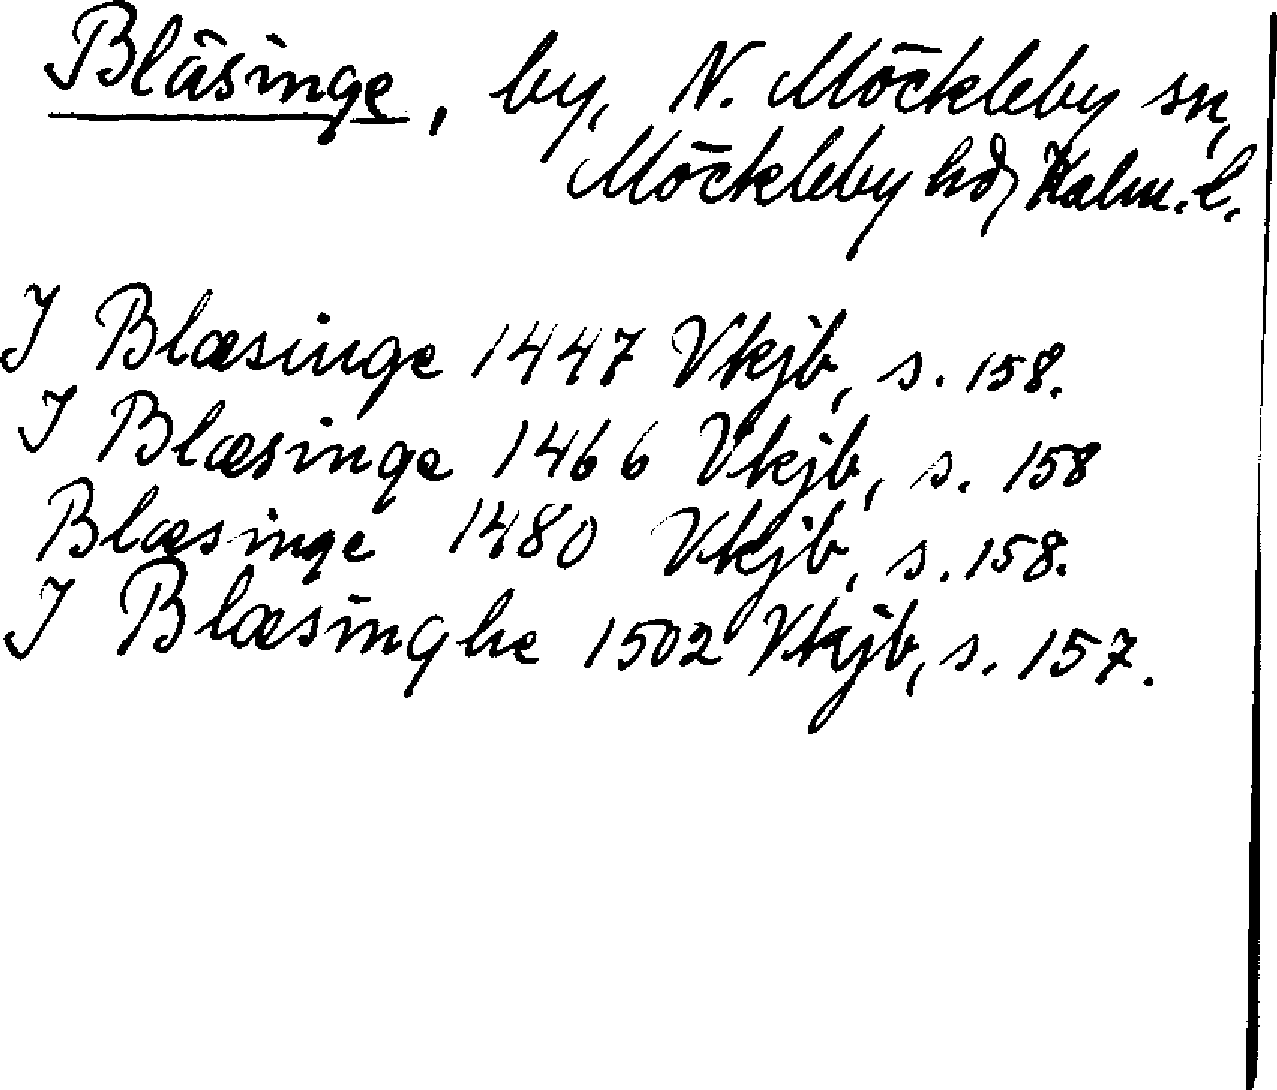 Bläsinge, by, N. Möckleby sn,
Möckleby hd, Kalm. l.
I Blæsinge 1447 Vkjb, s. 158.
I Blæsinge 1466 Vkjb, s. 158
Blæsinge 1480 Vkjb, s. 158.
I Blæsinghe 1502 Vkjb, s. 157.